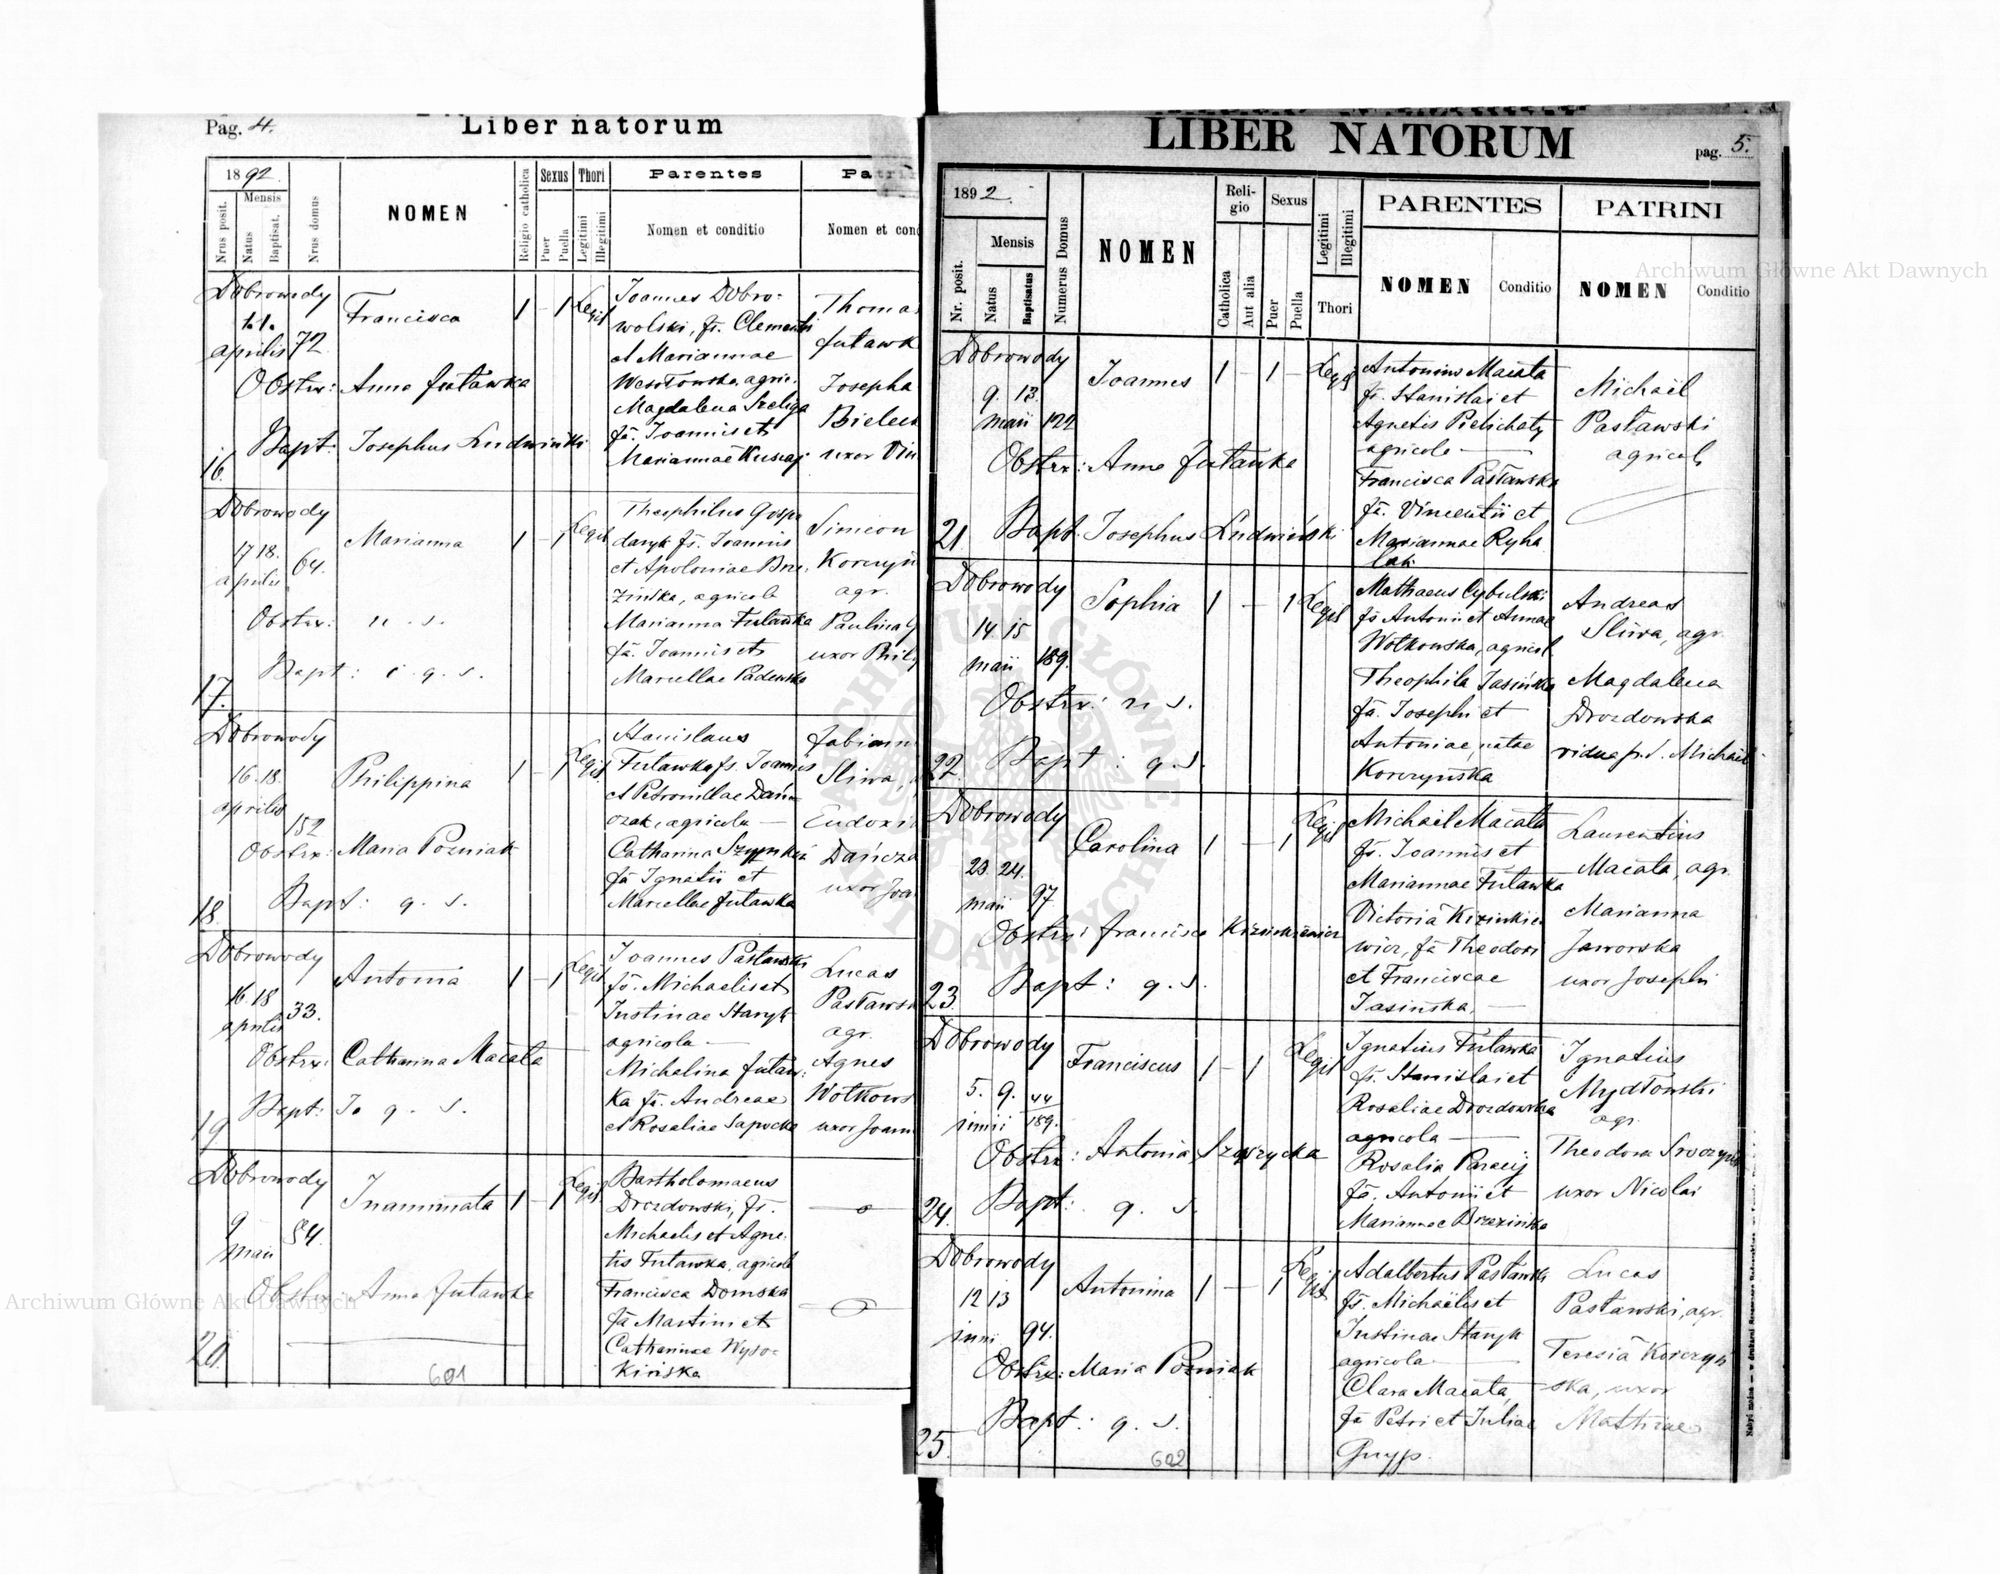 Pag. 4.
Liber natorum
1892.
Mensis
Nrus posit.
Natus
Baptisat.
Nrus domus
NOMEN
Religio catholica
Sexus
Puer
Puella
Thori
Legitimi
Illegitimi
Parentes
Nomen et conditio
Patri
Nomen et con
Dobrowody
11.
aprilis 72
Francisca 1 - 1 Legit
Obstrx: Anna Futawka
Bapt: Josephus Ludwiński
16.
Joannes Dobro-
wolski, fs. Clementi
et Mariannae
Wesołowska, agric.
Magdalena Szeliga
fa. Joannis et
Mariannae
Thoma
Futawk
Josepha
Bielec
uxor Vin
Dobrowody
17 18.
aprilis 64.
Marianna 1 - 1 Legit
Obstrx: u. s.
Bapt: i. q. s.
17.
Theophilus Gospo
daryk fs. Joannis
et Apoloniae Brze
zińska, agricola
Marianna Futawka
fa. Joannis et
Marcellae Padewska
Simeon
Korczyń
agr.
Paulina
uxor Phil
Dobrowody
16. 18.
aprilis
152
Philippina 1 - 1 Legit
Obstrx: Maria Pozniak
Bapt: q. s.
18.
Stanislaus
Futawka fs. Joannis
et Petronillae Dań-
czak, agricola —
Catharina
fa Ignatii et
Marcellae Futawka
Fabian
Sliwa,
Eudoxi
Dańcza
uxor Joa
Dobrowody
16. 18
aprilis 33.
Antonia 1 - 1 Legit
Obstrx: Catharina Macata
Bapt: q. s.
19.
Joannes Pastawski
fs. Michaelis et
Justinae Haryk
agricola —
Michalina Futaw-
ka fa. Andreae
et Rosaliae Sapocka
Lucas
Pastawsk
agr.
Agnes
Wotkows
uxor Joann
Dobrowody
9
maii 84.
Inanimata 1 - 1 Legit
Obstrx: Anna Futawka
20.
Bartholomaeus
Drozdowski, fs.
Michaelis et Agne-
tis Futawka, agricola
Francisca Domska
fa Martini et
Catharinae Wyso-
kińska
601
LIBER NATORUM
pag. 5.
1892.
Mensis
Nr. posit.
Natus
Baptisatus
Numerus Domus
NOMEN
Reli-
gio
Catholica
Aut alia
Sexus
Puer
Puella
Legitimi
Illegitimi
Thori
PARENTES
NOMEN
Conditio
PATRINI
NOMEN
Conditio
Dobrowody
9. 13.
maii 122
Joannes 1 - 1 - Legit
Obstrx: Anna Futawka
21 Bapt. Josephus Ludwiński
Antonius Macata
fs. Stanislai et
Agnetis Pielichaty
agricola —
Francisca Pastawska
fa. Vincentii et
Mariannae Ryha
lak
Michaël
Pastawski
agricola
Dobrowody
14. 15
maii 189.
Sophia 1 - 1 Legit
Obstrx: u. s.
22. Bapt: q. s.
Mathaeus Cybulski
fs Antonii et Annae
Wotkowska, agricol.
Theophila Jasińska
fa. Josephi et
Antoniae, natae
Korczyńska
Andreas
Sliwa, agr.
Magdalena
Drozdowska
vidua p. d. Michaël
Dobrowody
23. 24.
maii 97
Carolina 1 - 1 Legit
Obstrx: Francisca Krzinkiewicz
23. Bapt: q. s.
Michael Macata
fs. Joannis et
Mariannae Futawka
Victoria Krzinkie
wicz, fa Theodori
et Franciscae
Jasińska. —
Laurentius
Macata, agr.
Marianna
Jaworska
uxor Josephi
Dobrowody
5. 9. 44
junii 189.
Franciscus 1 - 1 Legit
Obstrx: Antonia Szwzycka
24. Bapt: q. s.
Ignatius Futawka
fs. Stanislai et
Rosaliae Drozdowska
agricola —
Rosalia
fa. Antonii et
Mariannae Brzezińska
Ignatius
Mydłowski
agr.
Theodora
uxor Nicolai
Dobrowody
12 13
juni 94.
Antonina 1 - 1 Legit
Obstrx: Maria Pozniak
25. Bapt: q. s.
Adalbertus Pastawski
fs. Michaëlis et
Justinae Haryk
agricola —
Clara Macata,
fa Petri et Juliae
Lucas
Pastawski, agr.
Teresia Korczyń
ska, uxor
Mathiae
602
Archiwum Główne Akt Dawnych
Archiwum Główne Akt Dawnych
ARCHIWUM GŁÓWNE AKT DAWNYCH